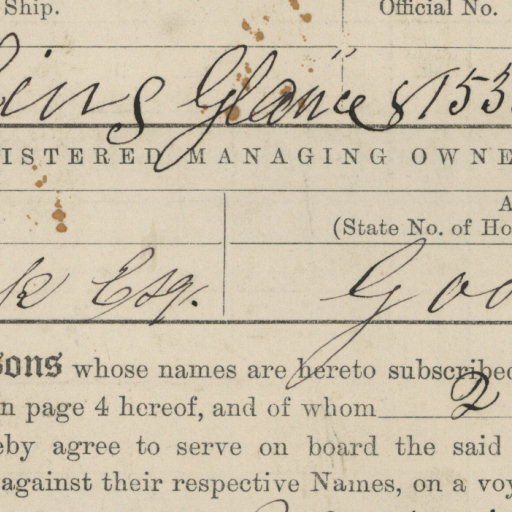 Ship. Official No.
Glance 8153
ISTERED MANAGING OWNE
A
(State No. of Ho
k Esq. Goo
sons whose names are hereto subscribed
n page 4 hereof, and of whom 2
eby agree to serve on board the said
against their respective Names, on a voy